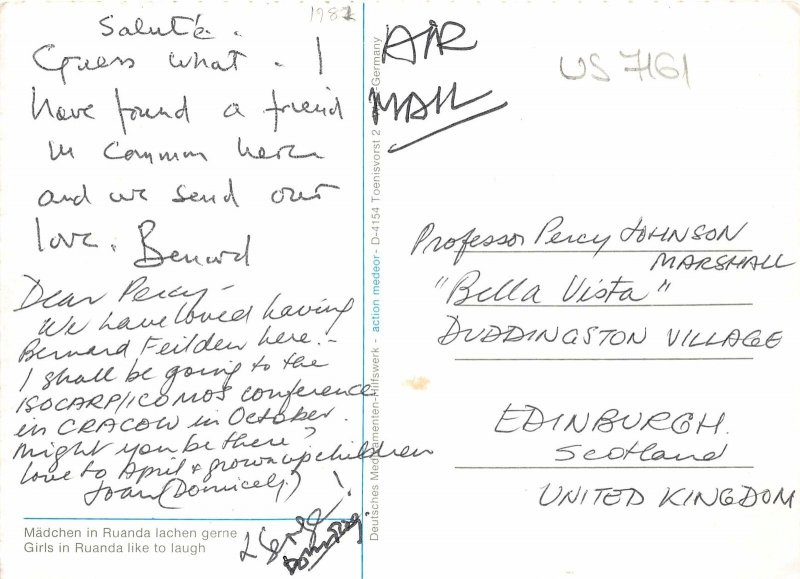 1987
Saluté.
Guess what. I
have found a friend
in common here
and we send our
love. Benard
Dear Percy -
We have loved having
Bernard Feilden here. -
I shall be going to the
ISOCARP/ICOMOS conference
in CRACOW in October.
Might you be there?
love to April & grown up children
Joan (Domicelj)!
Mädchen in Ruanda lachen gerne
Girls in Ruanda like to laugh
Deutsches Medikamenten-Hilfswerk - action medeor - D-4154 Toenisvorst 2 Germany
AIR
MAIL
US 7161
Professor Percy JOHNSON
MARSHALL
"Bella Vista"
DUDDINGSTON VILLAGE
EDINBURGH.
Scotland
UNITED KINGDOM